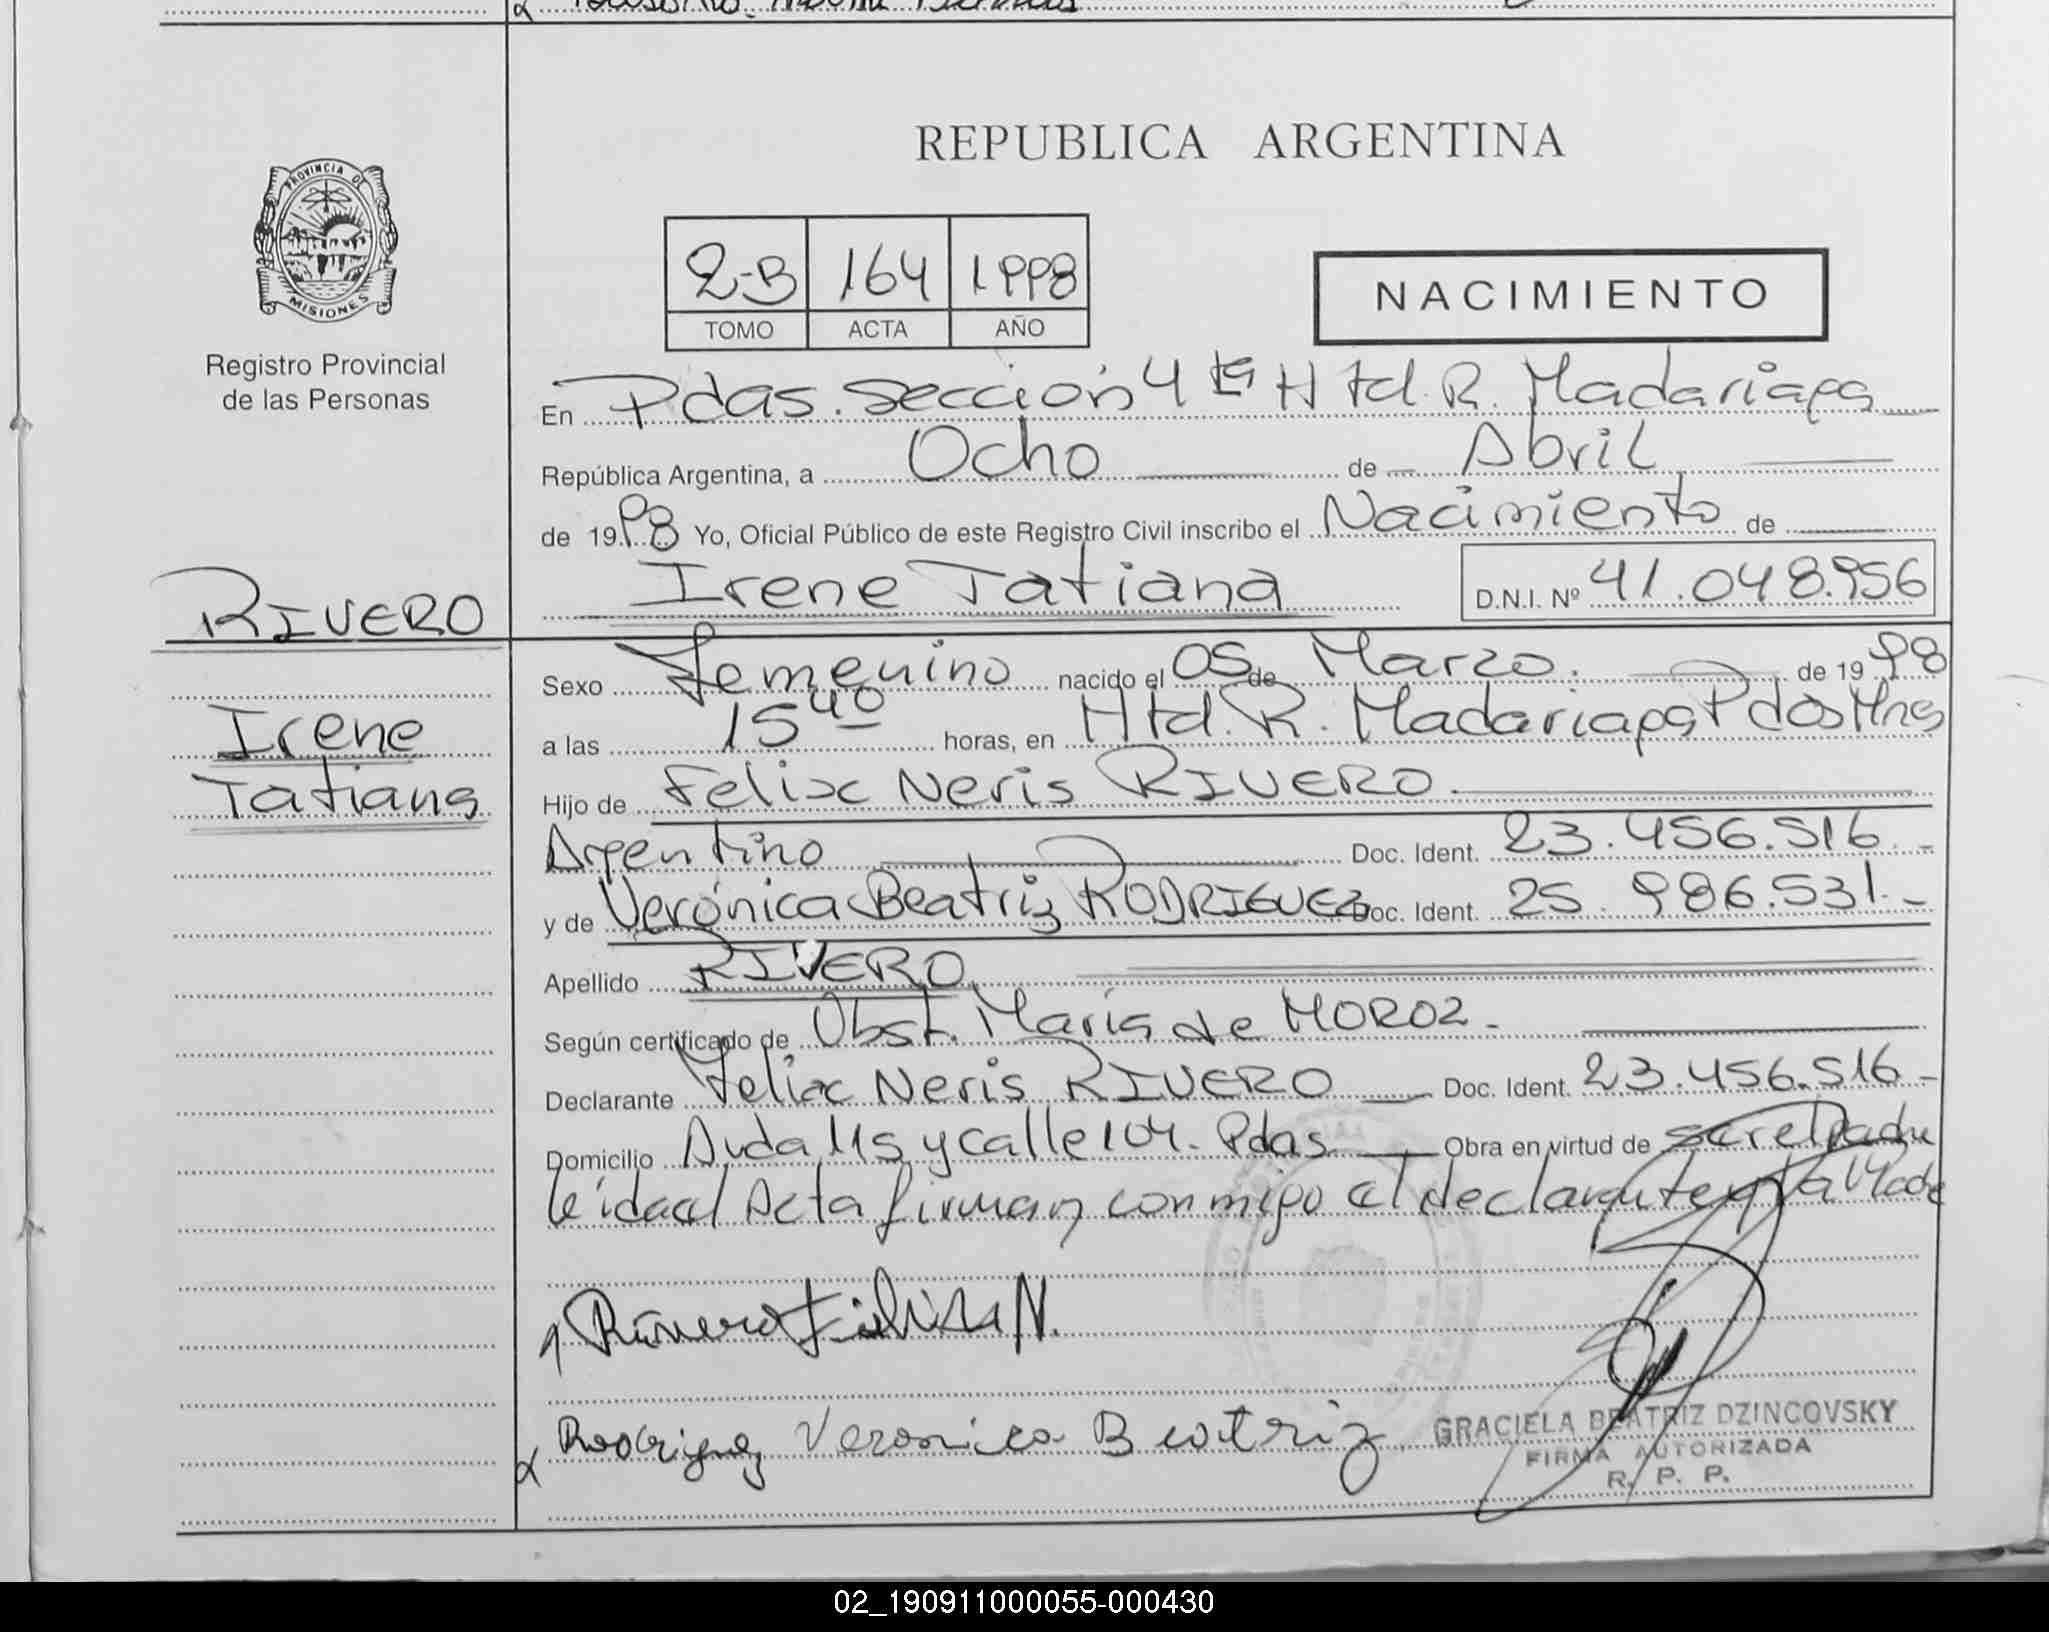 REPUBLICA ARGENTINA
PROVINCIA DE
MISIONES
Registro Provincial
de las Personas
2-B 164 1998
TOMO ACTA AÑO
NACIMIENTO
En Pdas. sección 4ta Htal. R. Madariaga
República Argentina, a Ocho de Abril
de 1998 Yo, Oficial Público de este Registro Civil inscribo el Nacimiento de
Irene Tatiana D.N.I. Nº 41.048.956
RIVERO
Irene
Tatiana
Sexo Femenino nacido el 05 de Marzo. de 1998
a las 15 40 horas, en Htal. R. Madariaga Pdas Mnes
Hijo de Felix Neris RIVERO.
Argentino Doc. Ident. 23.456.516.-
y de Verónica Beatriz RODRIGUEZ Doc. Ident. 25.986.531.-
Apellido RIVERO
Según certificado de Obst. María de MOROZ.
Declarante Felix Neris RIVERO Doc. Ident. 23.456.516-
Domicilio Avda 115 y calle 104. Pdas Obra en virtud de
leida el Acta firman conmigo el declarante y la Madre
Rivero Felix N.
Rodriguez Veronica Beatriz
GRACIELA BEATRIZ DZINCOVSKY
FIRMA AUTORIZADA
R. P. P.
02_190911000055-000430